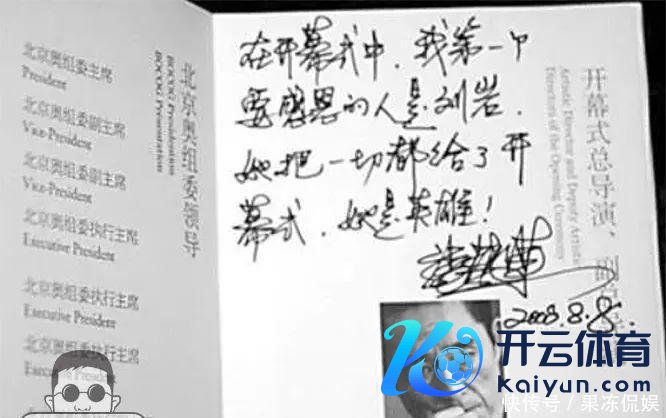 北京奥组委主席
President
北京奥组委副主席
Vice-President
北京奥组委副主席
Vice-President
北京奥组委执行主席
Executive President
北京奥组委执行主席
Executive President
北京奥组委执行主席
北京奥组委领导
BOCOG Presentation
在开幕式中，我第一个
要感恩的人是刘岩．
她把一切都给了开
幕式，她是英雄！
2008.8.8.
开幕式总导演、
Artistic Director and Deputy Artistic
Directors of the Opening Ceremony
开云体育
Kaiyun.com
快传号／果冻侃娱